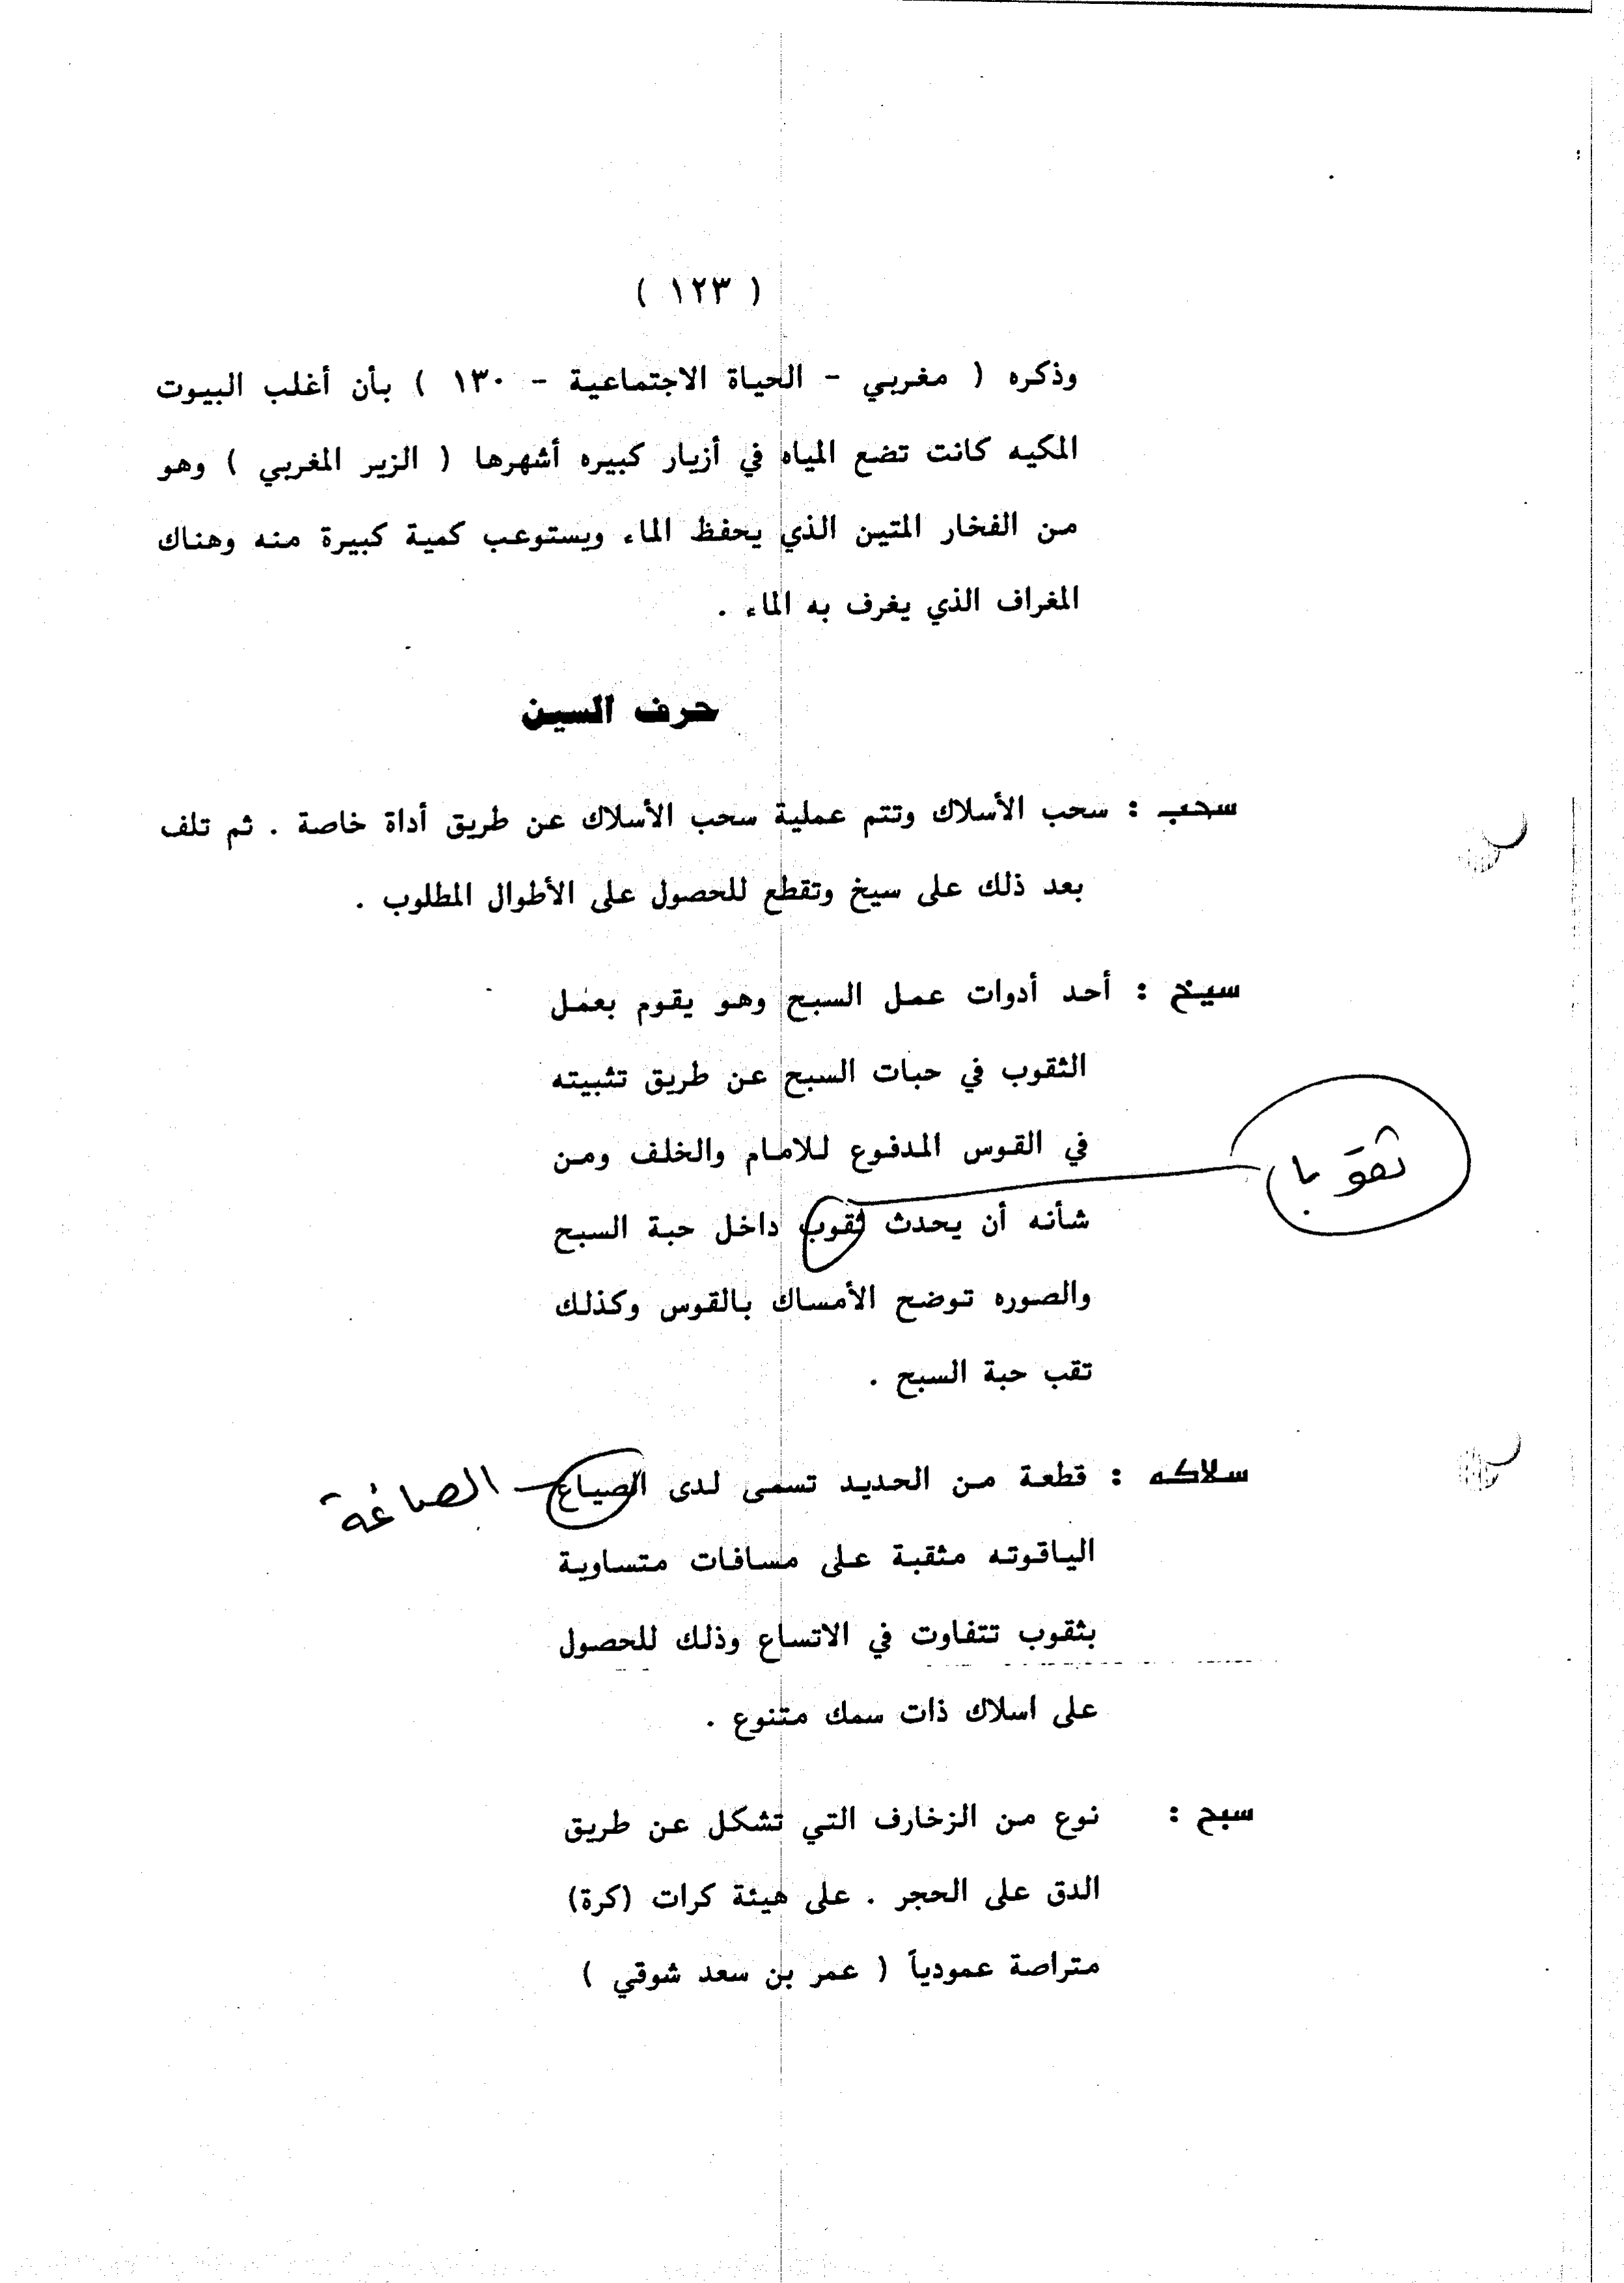 ( ١٢٣ )
وذكره ( مغربي - الحياة الاجتماعية - ١٣٠ ) بأن أغلب البيوت
المكيه كانت تضع المياه في أزيار كبيره أشهرها ( الزير المغربي ) وهو
من الفخار المتين الذي يحفظ الماء ويستوعب كمية كبيرة منه وهناك
المغراف الذي يغرف به الماء .
حرف السين
سحب : سحب الأسلاك وتتم عملية سحب الأسلاك عن طريق أداة خاصة . ثم تلف
بعد ذلك على سيخ وتقطع للحصول على الأطوال المطلوب .
سيخ : أحد أدوات عمل السبح وهو يقوم بعمل
الثقوب في حبات السبح عن طريق تثبيته
في القوس المدفوع للامام والخلف ومن
ثقوبا
شأنه أن يحدث ثقوب داخل حبة السبح
والصوره توضح الأمساك بالقوس وكذلك
تقب حبة السبح .
سلاكه : قطعة من الحديد تسمى لدى الصياغ
الصاغة
الياقوته مثقبة على مسافات متساوية
بثقوب تتفاوت في الاتساع وذلك للحصول
على اسلاك ذات سمك متنوع .
سبح : نوع من الزخارف التي تشكل عن طريق
الدق على الحجر . على هيئة كرات (كرة)
متراصة عمودياً ( عمر بن سعد شوقي )